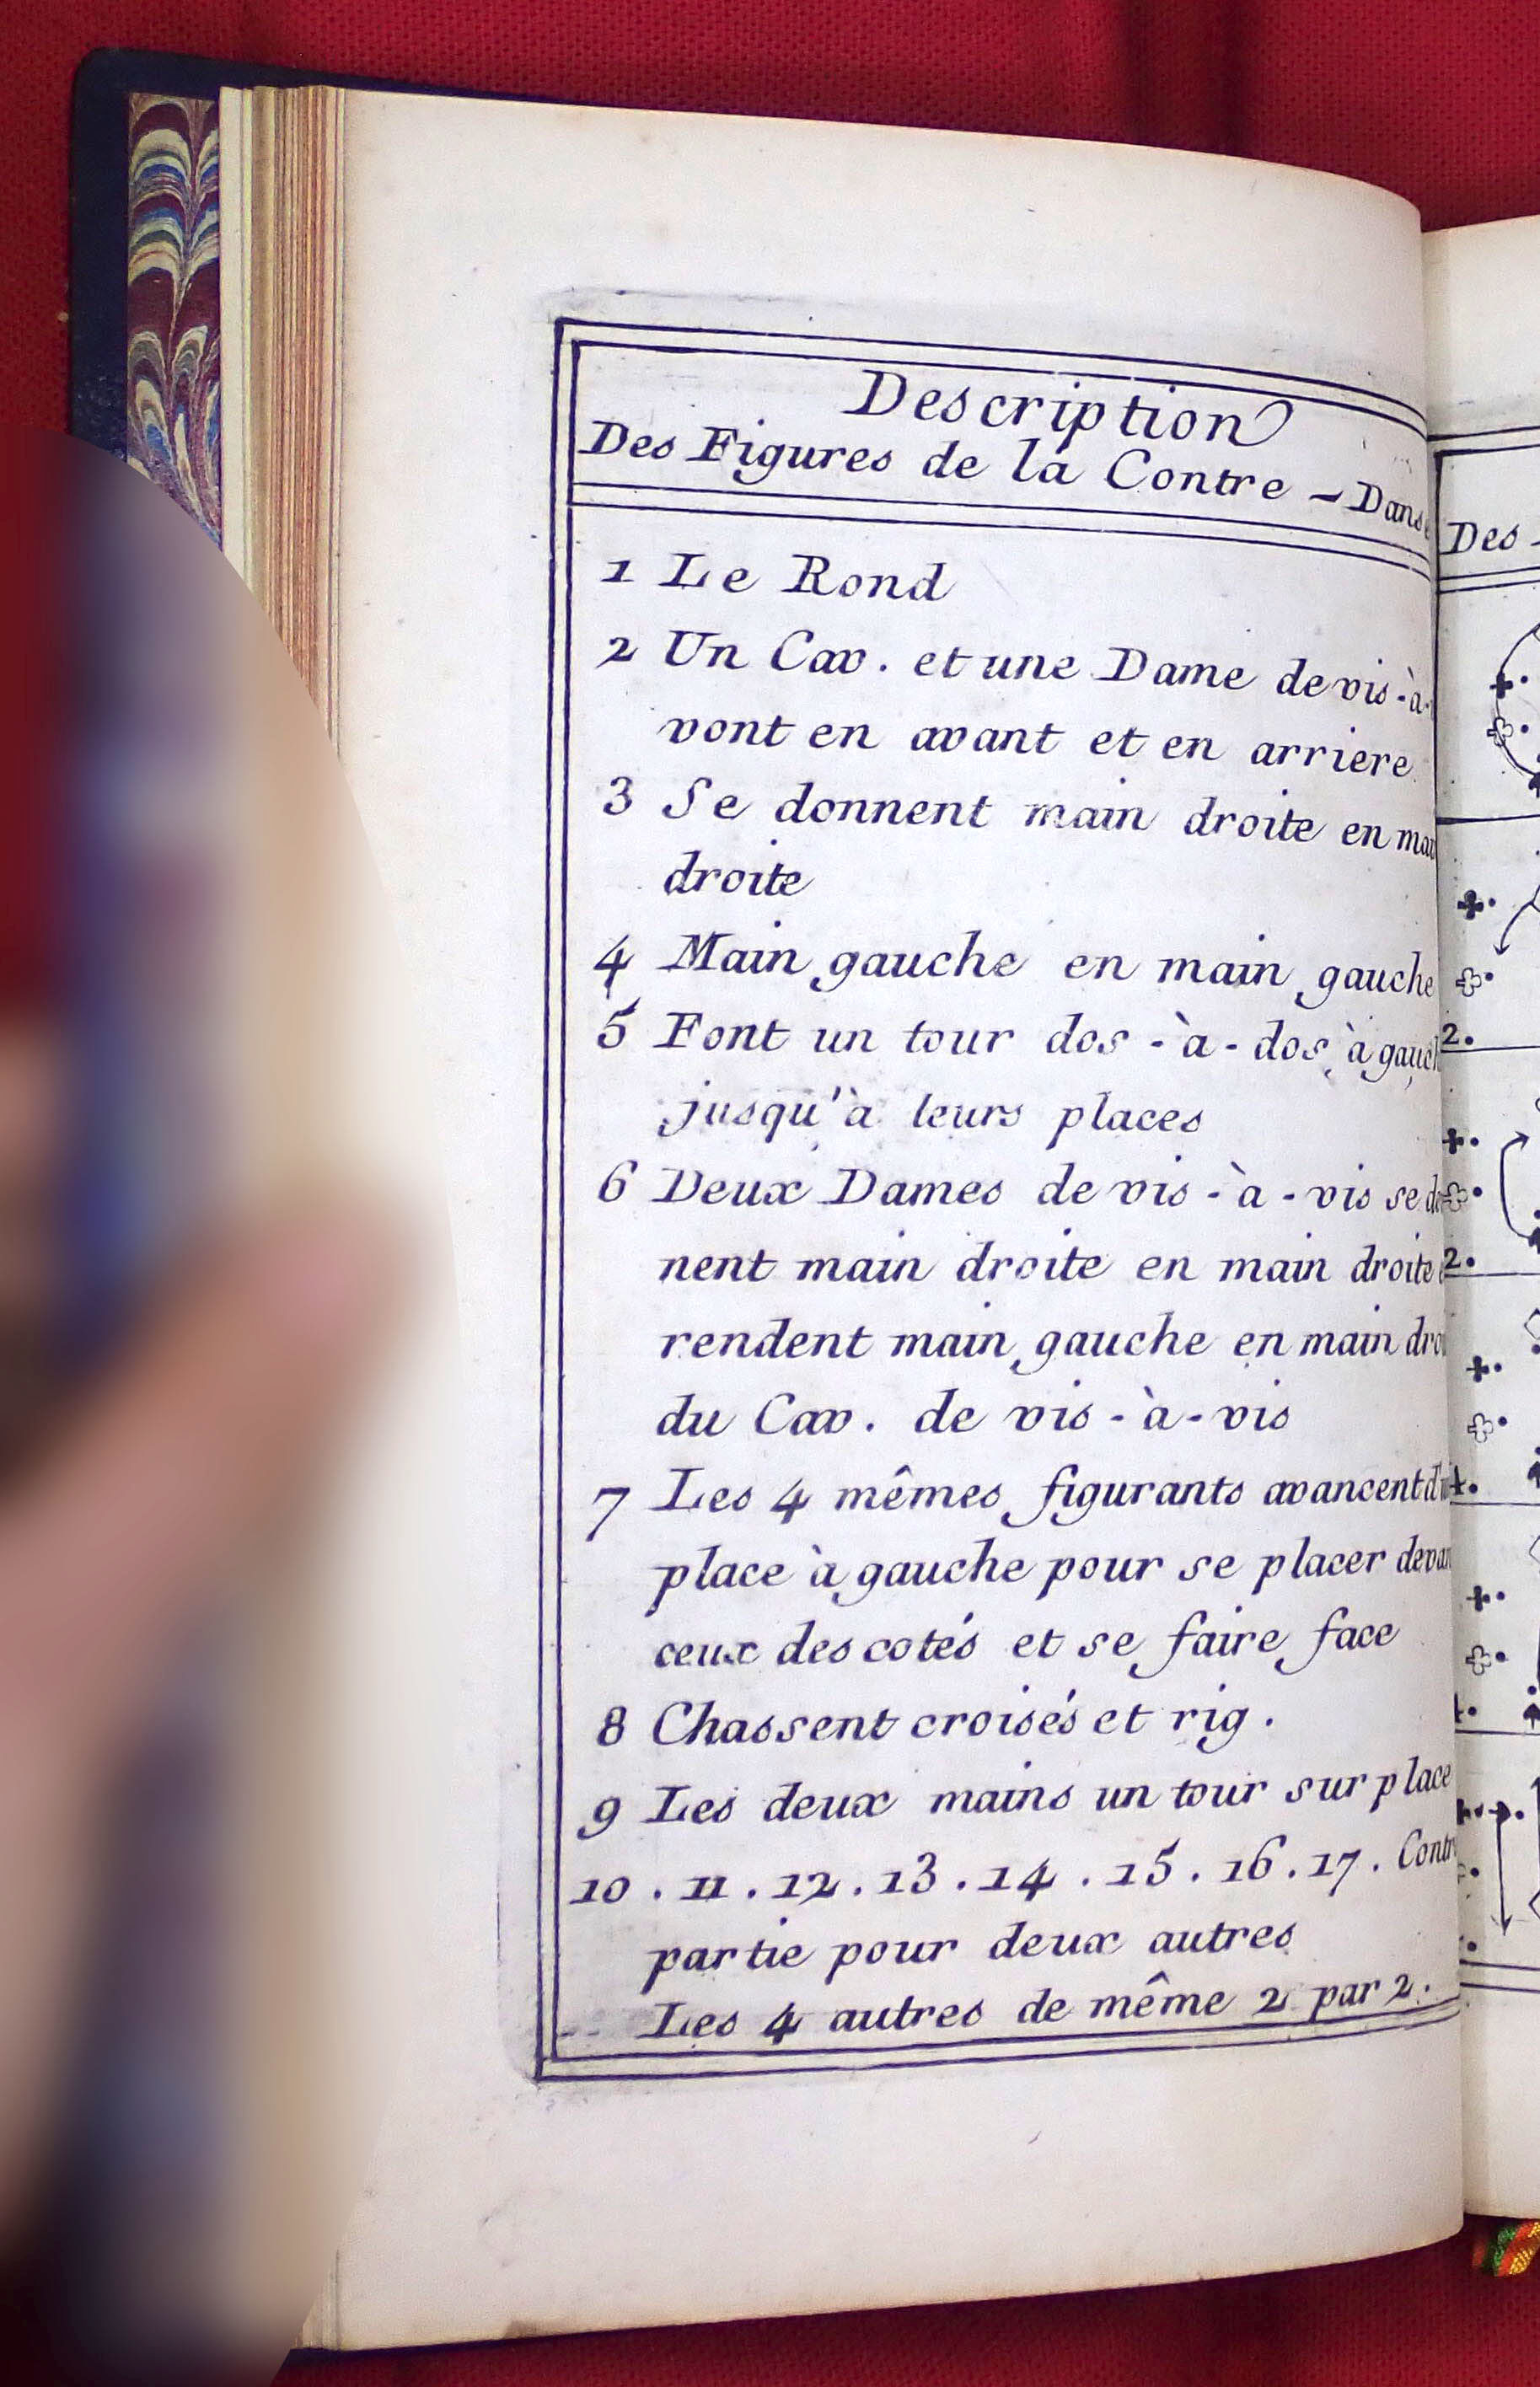 Description
Des Figures de la Contre - Danse
1 Le Rond
2 Un Cav. et une Dame de vis-à-
vont en avant et en arriere
3 Se donnent main droite en
droite
4 Main gauche en main gauche
5 Font un tour dos-à-dos à
jusqu'à leurs places
6 Deux Dames de vis-à-vis se
nent main droite en main droite
rendent main gauche en main
du Cav. de vis-à-vis
7 Les 4 mêmes figurants avancent
place à gauche pour se placer
ceux des cotés et se faire face
8 Chassent croisés et rig.
9 Les deux mains un tour sur place
10 . 11 . 12 . 13 . 14 . 15 . 16 . 17 .
partie pour deux autres
Les 4 autres de même 2 par 2.
Des
2.
2.
4.